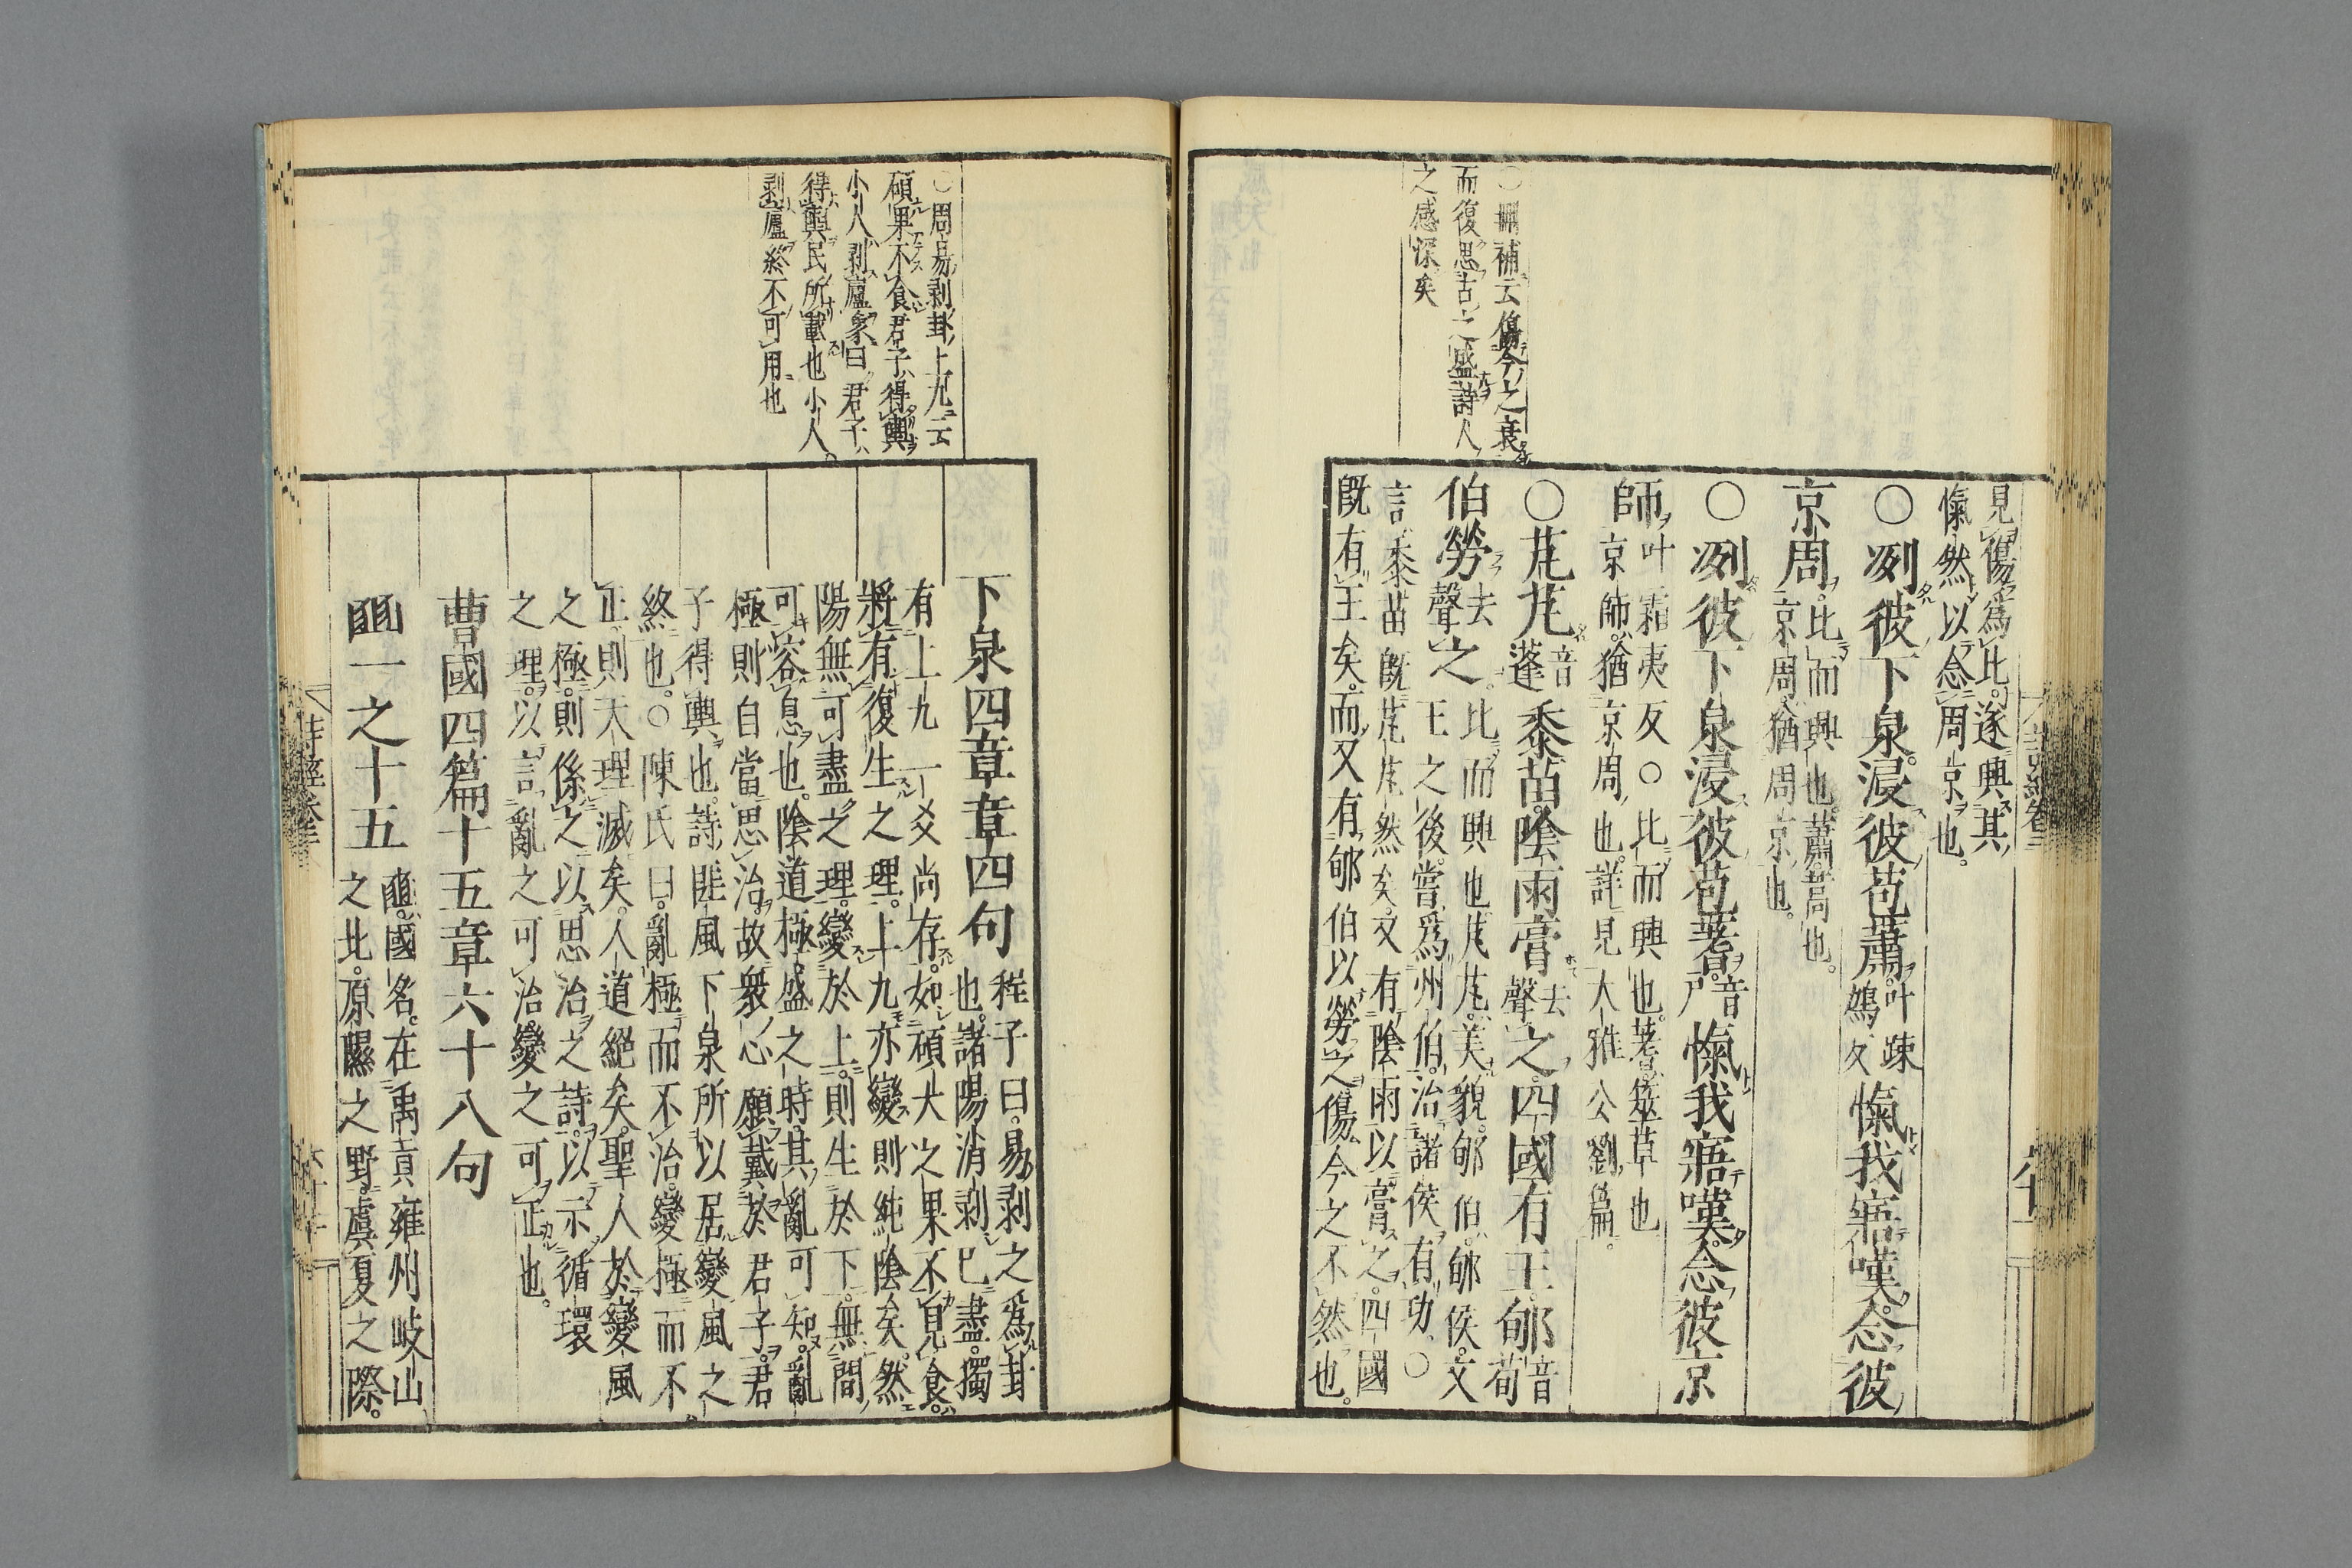 ○刪補云傷今之衰
而復思古之盛詩人
之感深矣
見傷爲比遂興其
愾然以念周京也
○冽彼下泉浸彼苞蕭叶疎鳩反愾我寤嘆念彼
京周比而興也蕭蒿也京周猶周京也
○冽彼下泉浸彼苞蓍音尸愾我寤嘆念彼京
師叶霜夷反○比而興也蓍筮草也京師猶京周也詳見大雅公劉篇
○芃芃音蓬黍苗陰雨膏去聲之四國有王郇音荀
伯勞去聲之比而興也芃芃美貌郇伯郇侯文
王之後嘗爲州伯治諸侯有功○
言黍苗旣芃芃然矣又有陰雨以膏之四國
旣有王矣而又有郇伯以勞之傷今之不然也
○周易剥卦上九云
碩果不食君子得輿
小人剥廬象曰君子
得輿民所載也小人
剥廬終不可用也
下泉四章章四句程子曰易剥之爲卦
也諸陽消剥已盡獨
有上九一爻尚存如碩大之果不見食
將有復生之理上九亦變則純陰矣然
陽無可盡之理變於上則生於下無間
可容息也陰道極盛之時其亂可知亂
極則自當思治故衆心願戴於君子君
子得輿也詩匪風下泉所以居變風之
終也○陳氏曰亂極而不治變極而不
正則天理滅矣人道絕矣聖人於變風
之極則係之以思治之詩以示循環
之理以言亂之可治變之可正也
曹國四篇十五章六十八句
豳一之十五豳國名在禹貢雍州岐山
之北原隰之野虞夏之際
詩經卷三